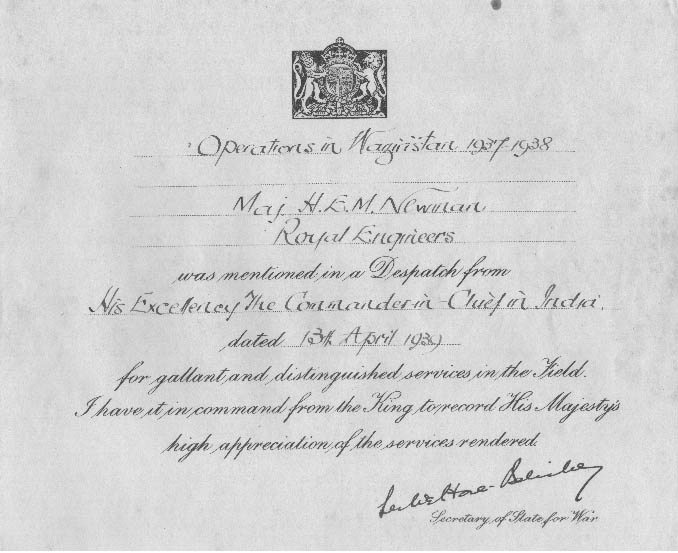 Operations in Waziristan 1937-1938
Maj. H.E.M. Newman
Royal Engineers
was mentioned in a Despatch from
His Excellency The Commander in-Chief in India.
dated 13th April 1939
for gallant and distinguished services in the Field.
I have it in command from the King to record His Majesty's
high appreciation of the services rendered.
Leslie Hore-Belisha
Secretary of State for War